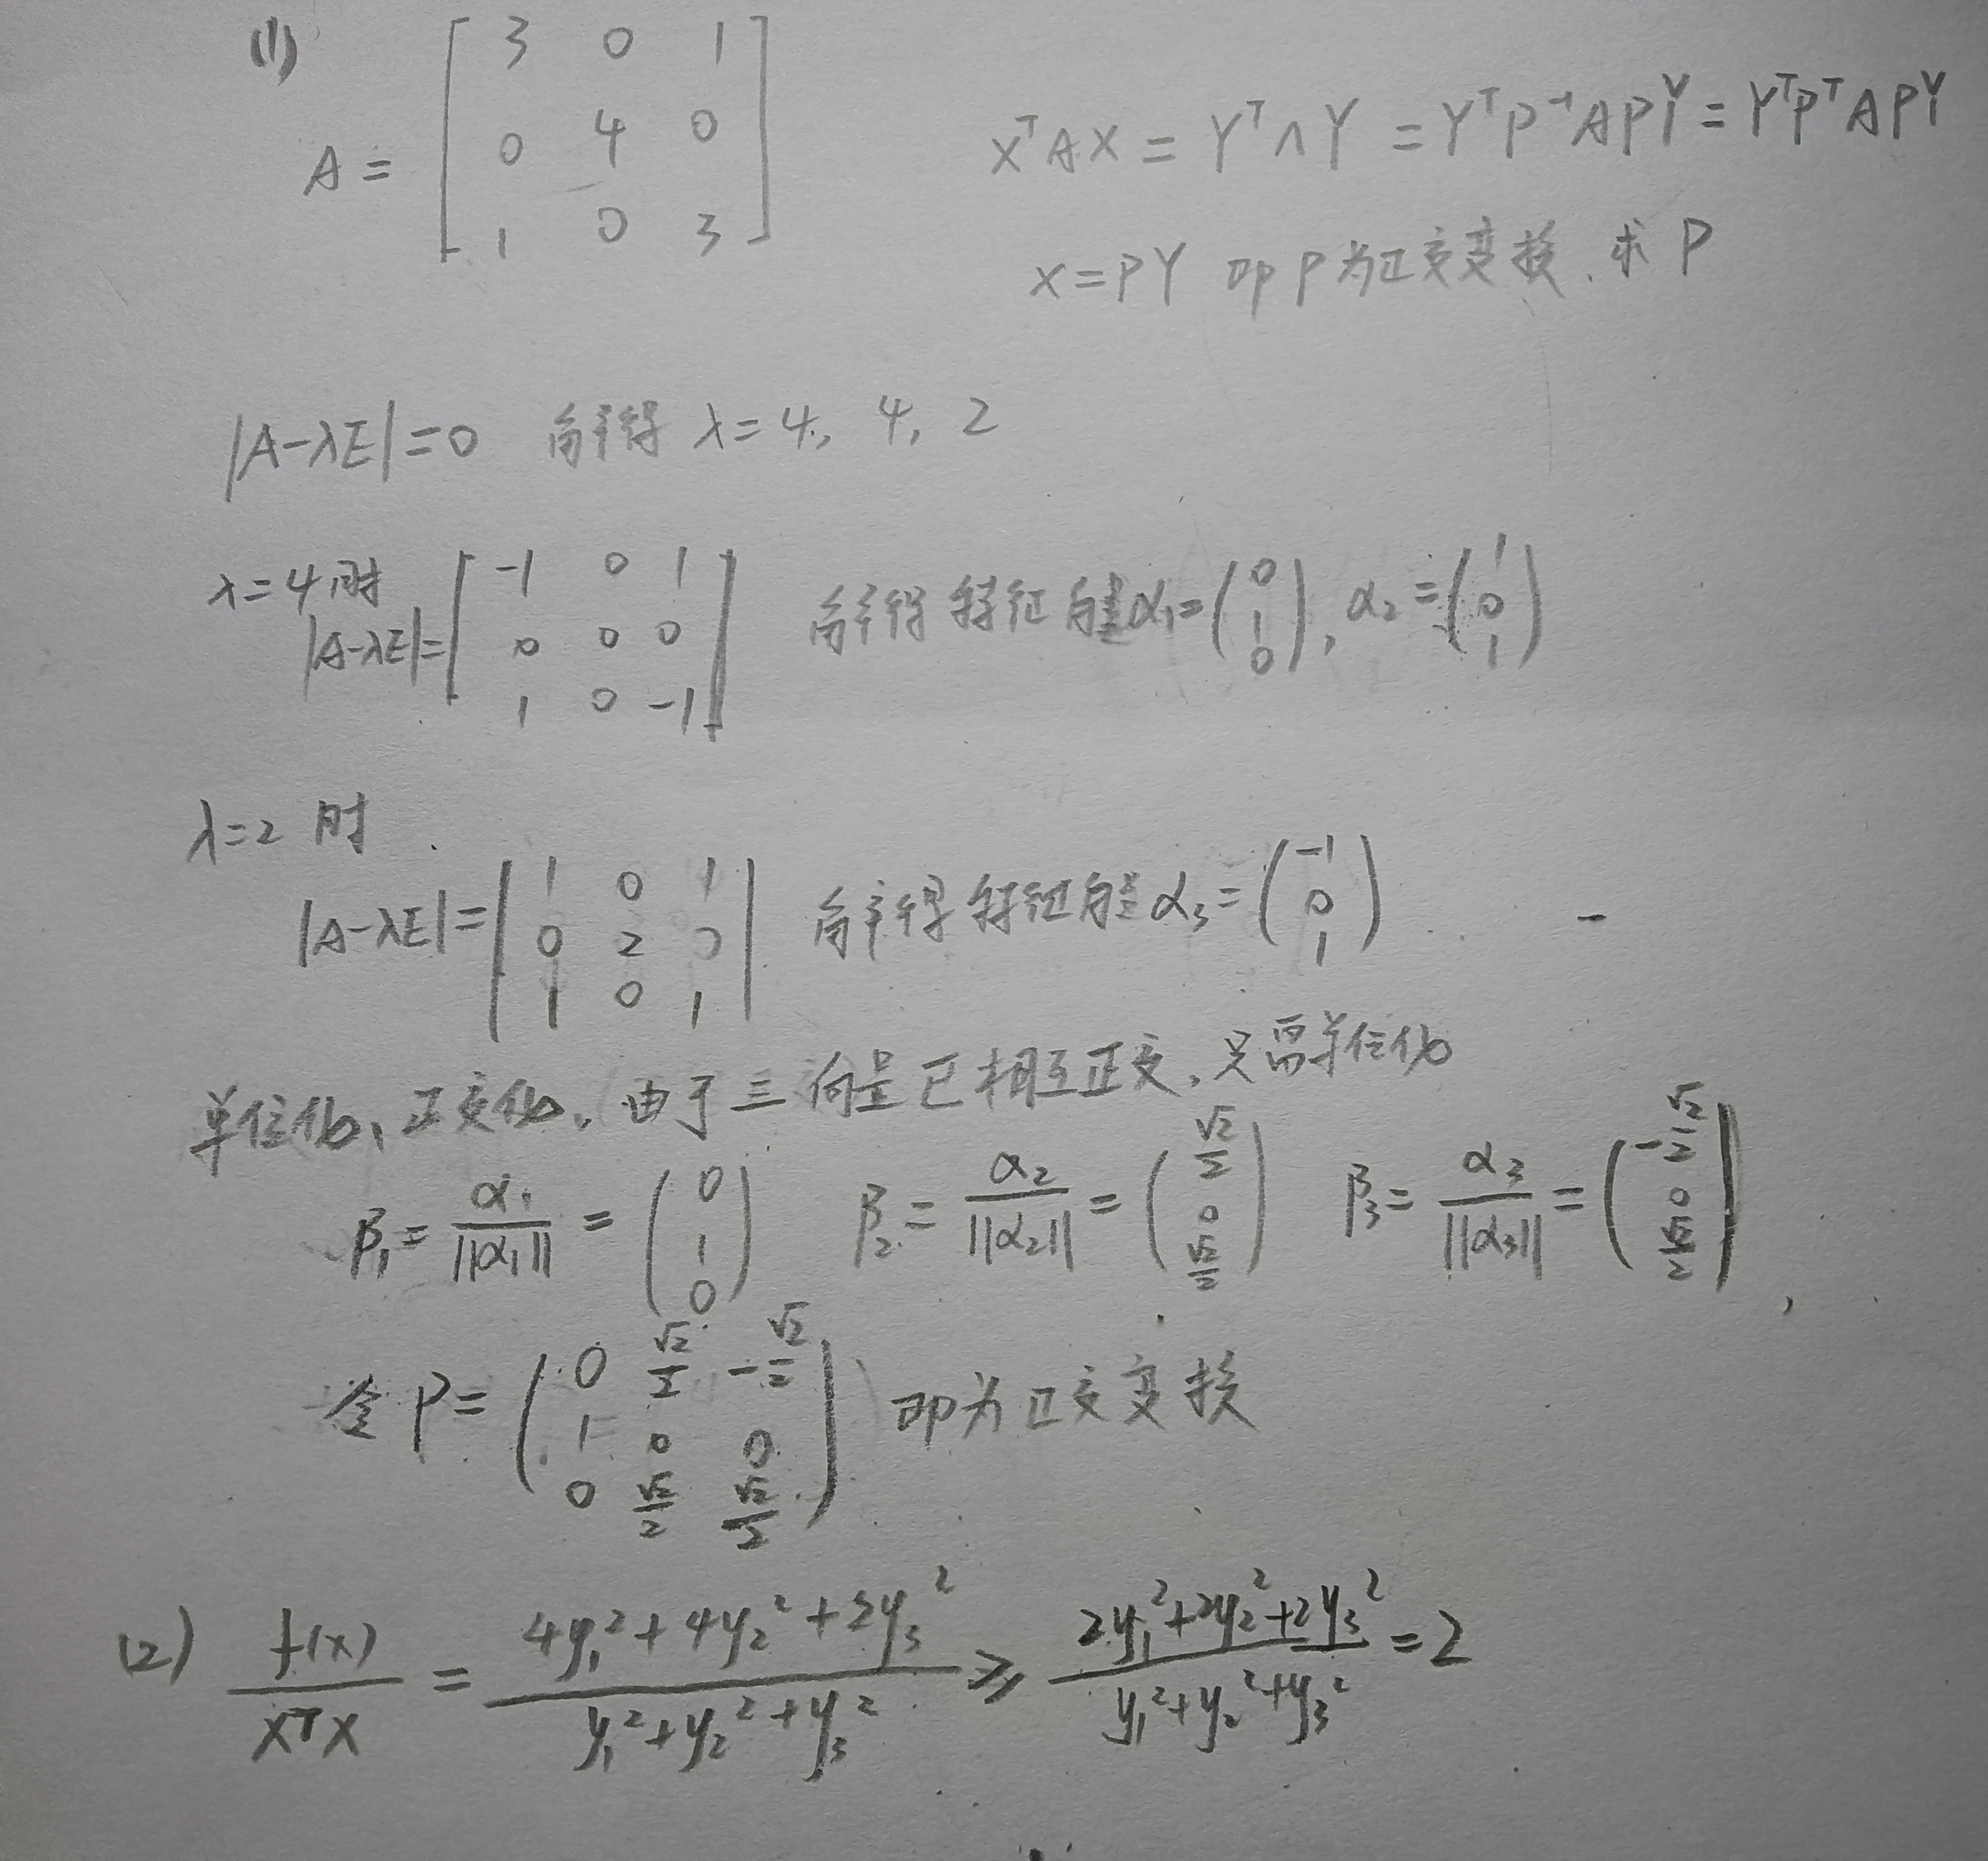 (1)
A = [ 3 0 1
0 4 0
1 0 3 ]
XᵀAX = Yᵀ∧Y = YᵀP⁻¹APY = YᵀPᵀAPY
X=PY 即P为正交变换. 求P
|A-λE|=0 解得 λ=4, 4, 2
λ=4时
|A-λE|= [ -1 0 1
0 0 0
1 0 -1 ] 解得特征向量α₁=(0 1 0), α₂=(1 0 1)
λ=2 时
|A-λE|= | 1 0 1
0 2 0
1 0 1 | 解得特征向量 α₃=(-1 0 1)
单位化、正交化. 由于三向量已相互正交, 只需单位化
β₁= α₁/||α₁|| = (0 1 0) β₂= α₂/||α₂|| = (√2/2 0 √2/2) β₃= α₃/||α₃|| = (-√2/2 0 √2/2),
令 P= ( 0 √2/2 -√2/2
1 0 0
0 √2/2 √2/2 ) 即为正交变换
(2) f(x)/XᵀX = (4y₁²+4y₂²+2y₃²)/(y₁²+y₂²+y₃²) ⩾ (2y₁²+2y₂²+2y₃²)/(y₁²+y₂²+y₃²) = 2